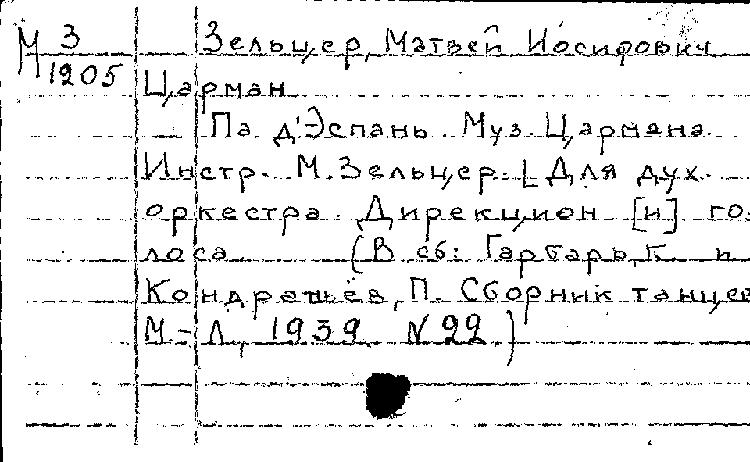 М 3 Зельцер, Матвей Иосифович
1205
Царман
Па д'Эспань. Муз. Цармана.
Инстр. М. Зельцер. [Для дух.
оркестра. Дирекцион [и] го-
лоса. (В сб: Гарбарь, К. и
Кондратьев, П. Сборник танцев
М-Л, 1939. N 22)